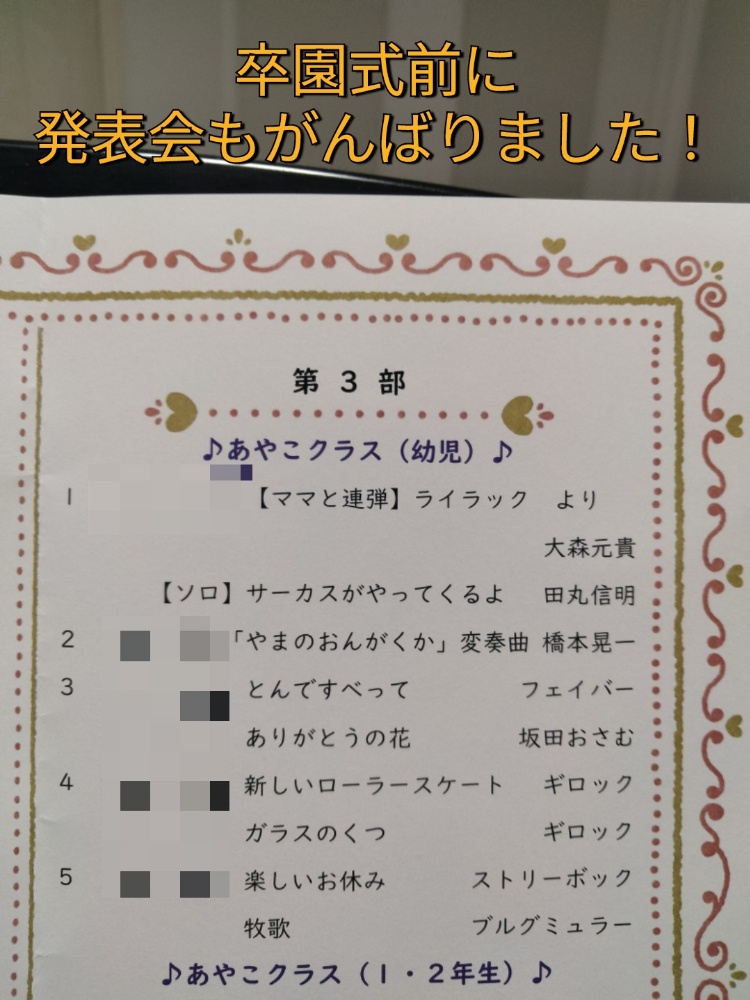 卒園式前に
発表会もがんばりました！
第3部
♪あやこクラス（幼児）♪
1 【ママと連弾】ライラック より
大森元貴
【ソロ】サーカスがやってくるよ 田丸信明
2 「やまのおんがくか」変奏曲 橋本晃一
3 とんですべって フェイバー
ありがとうの花 坂田おさむ
4 新しいローラースケート ギロック
ガラスのくつ ギロック
5 楽しいお休み ストリーボック
牧歌 ブルグミュラー
♪あやこクラス（1・2年生）♪